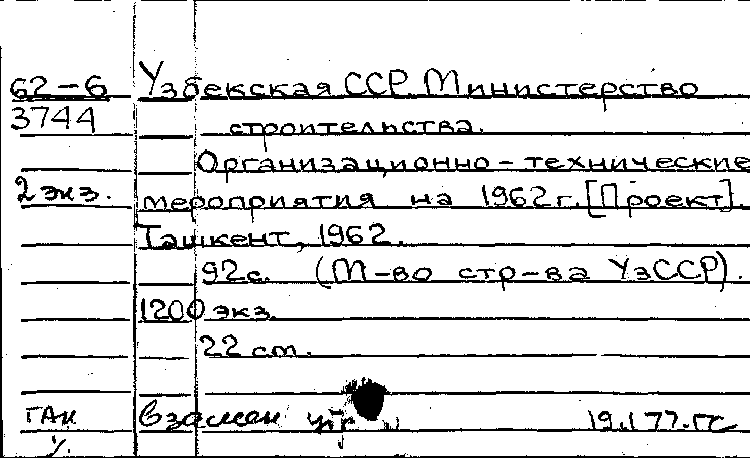 62-6 Узбекская ССР. Министерство
3744 строительства.
Организационно-технические
2 экз. мероприятия на 1962 г. [Проект].
Ташкент, 1962.
92 с. (М-во стр-ва УзССР).
1200 экз.
22 см.
взамен